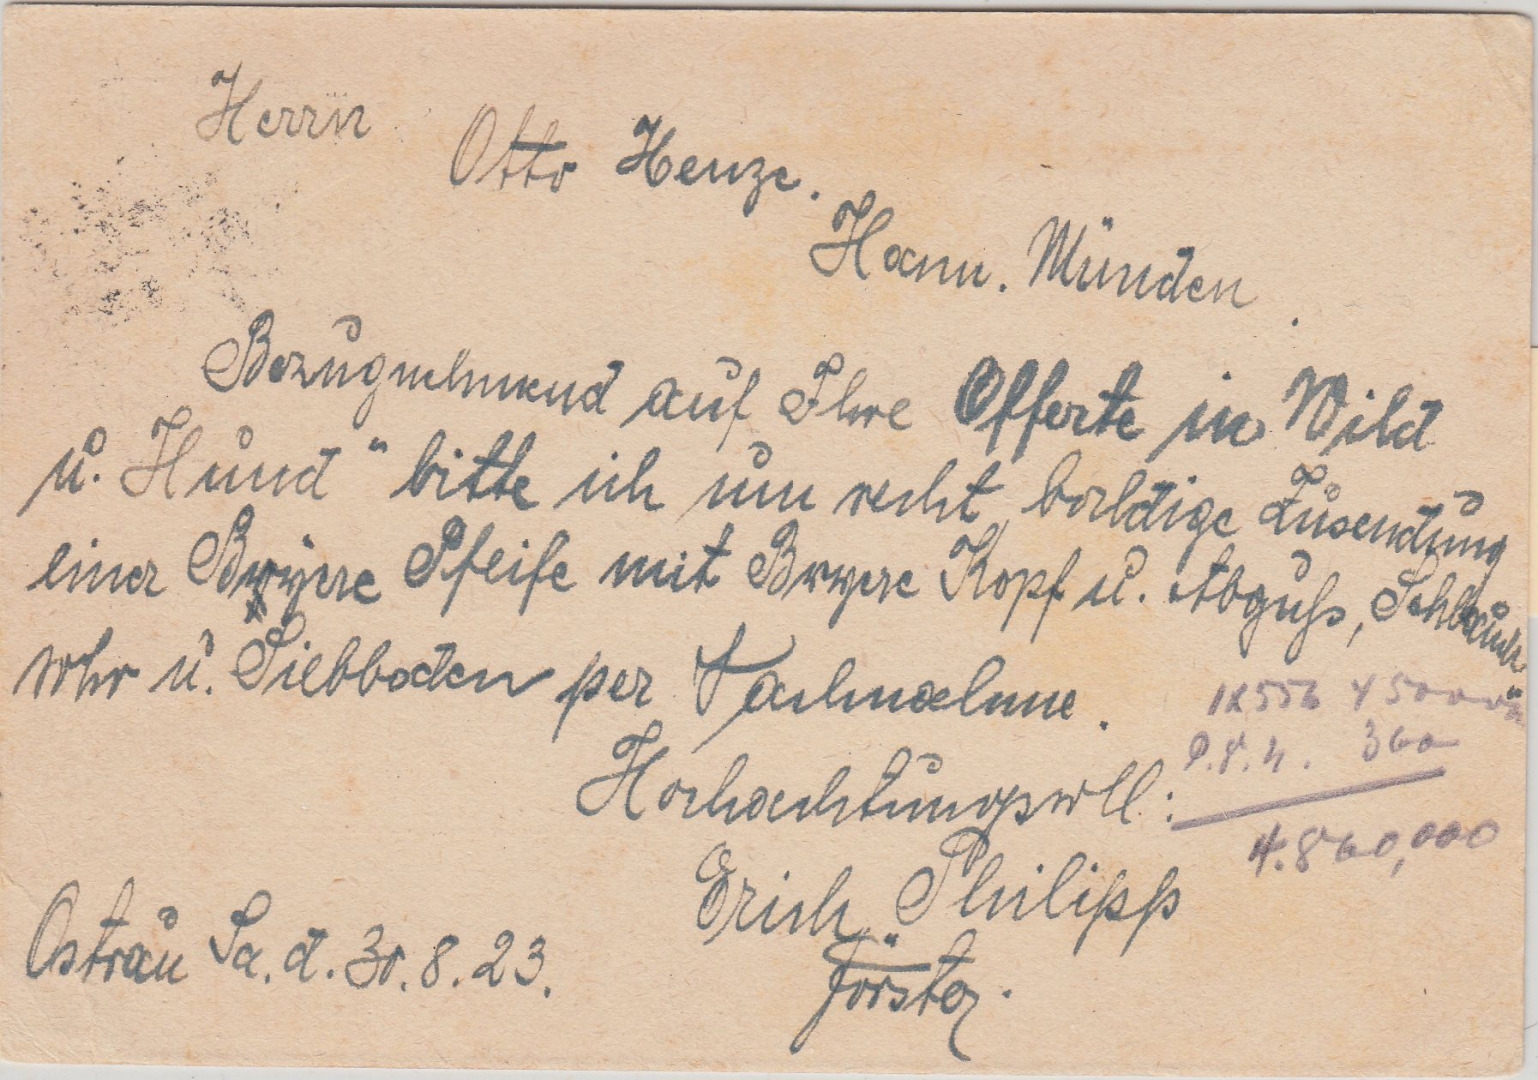 Herrn
Otto Henze.
Hann. Münden.
Bezugnehmend auf Ihre Offerte in Wild
u. Hund" bitte ich um recht baldige Zusendung
einer Bryere Pfeife mit Bryere Kopf u. Abguß, Schlauch
rohr u. Siebboden per Nachnahme.
Hochachtungsvoll:
Erich Philipp
Förster.
Ostrau Sa. d. 30.8.23.
1 X 556 4 500
P.S.N. 360
4.860,000